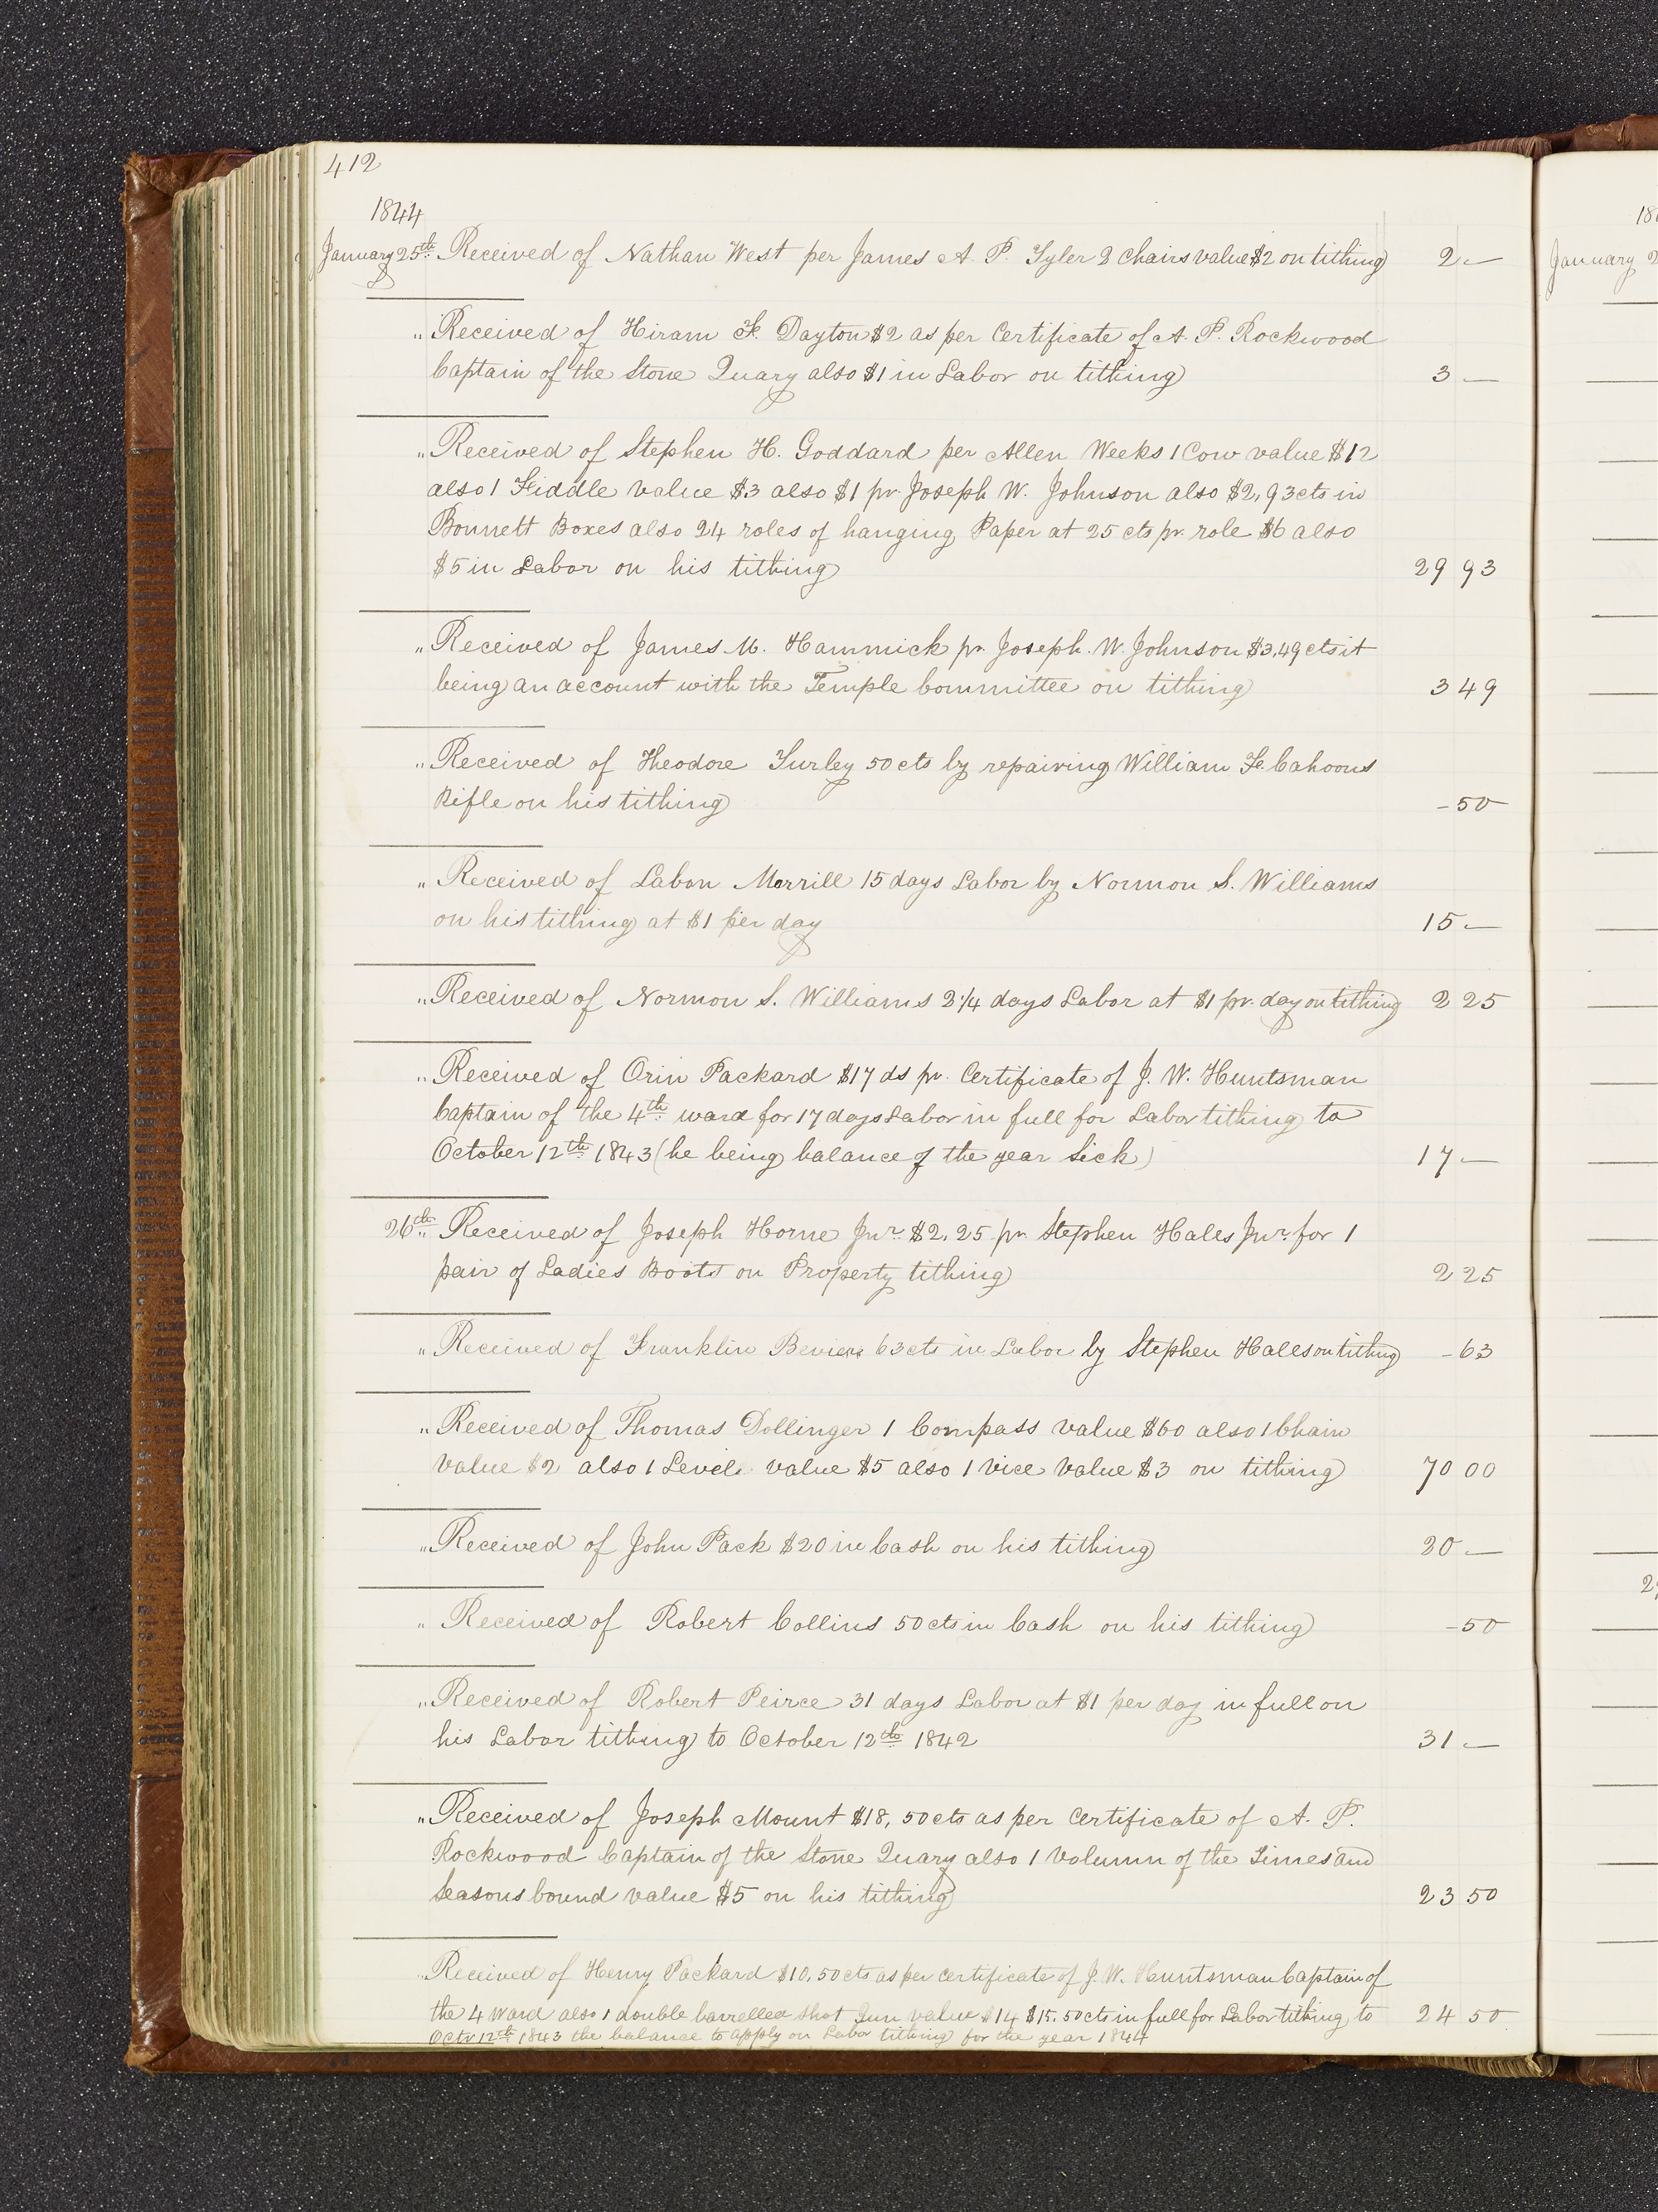 412
1844
January 25th Received of Nathan West per James A. P. Tyler 2 Chairs value $2 on tithing 2 —
" Received of Hiram F. Dayton $2 as per Certificate of A. P. Rockwood
Captain of the Stone Quary also $1 in Labor on tithing 3 —
" Received of Stephen H. Goddard per Allen Weeks 1 Cow value $12
also 1 Fiddle value $3 also $1 pr. Joseph W. Johnson also $2,93cts in
Bonnett Boxes also 24 roles of hanging Paper at 25 cts pr. role $6 also
$5 in Labor on his tithing 29 93
" Received of James M. Hammick pr. Joseph. W. Johnson $3,49 cts it
being an account with the Temple Committee on tithing 3 49
" Received of Theodore Turley 50 cts by repairing William F. Cahoons
Rifle on his tithing - 50
" Received of Laban Morrill 15 days Labor by Normon S. Williams
on his tithing at $1 per day 15 —
" Received of Normon S. Williams 2 1/4 days Labor at $1 pr. day on tithing 2 25
" Received of Orin Packard $17 ds pr. Certificate of J. W. Huntsman
Captain of the 4th ward for 17 days Labor in full for Labor tithing to
October 12th 1843 (he being balance of the year Sick) 17 —
26th " Received of Joseph Horne Jnr. $2,25 pr. Stephen Hales Jnr. for 1
pair of Ladies Boots on Property tithing 2 25
" Received of Franklin 63cts in Labor by Stephen Hales on tithing - 63
" Received of Thomas Dollinger 1 Compass value $60 also 1 Chain
value $2 also 1 Level value $5 also 1 vice value $3 on tithing 70 00
" Received of John Pack $20 in Cash on his tithing 20 —
" Received of Robert Collins 50 cts in Cash on his tithing - 50
" Received of Robert Peirce 31 days Labor at $1 per day in full on
his Labor tithing to October 12th 1842 31 —
" Received of Joseph Mount $18,50 cts as per Certificate of A. P.
Rockwood Captain of the Stone Quary also 1 Volumn of the Times and
Seasons bound value $5 on his tithing 23 50
" Received of Henry Packard $10,50 cts as per certificate of J. W. Huntsman Captain of
the 4 Ward also 1 double barrelled shot Gun value $14 $15.50 cts in full for Labor tithing to 24 50
Octr 12th 1843 the balance to apply on Labor tithing for the year 1844
January 2